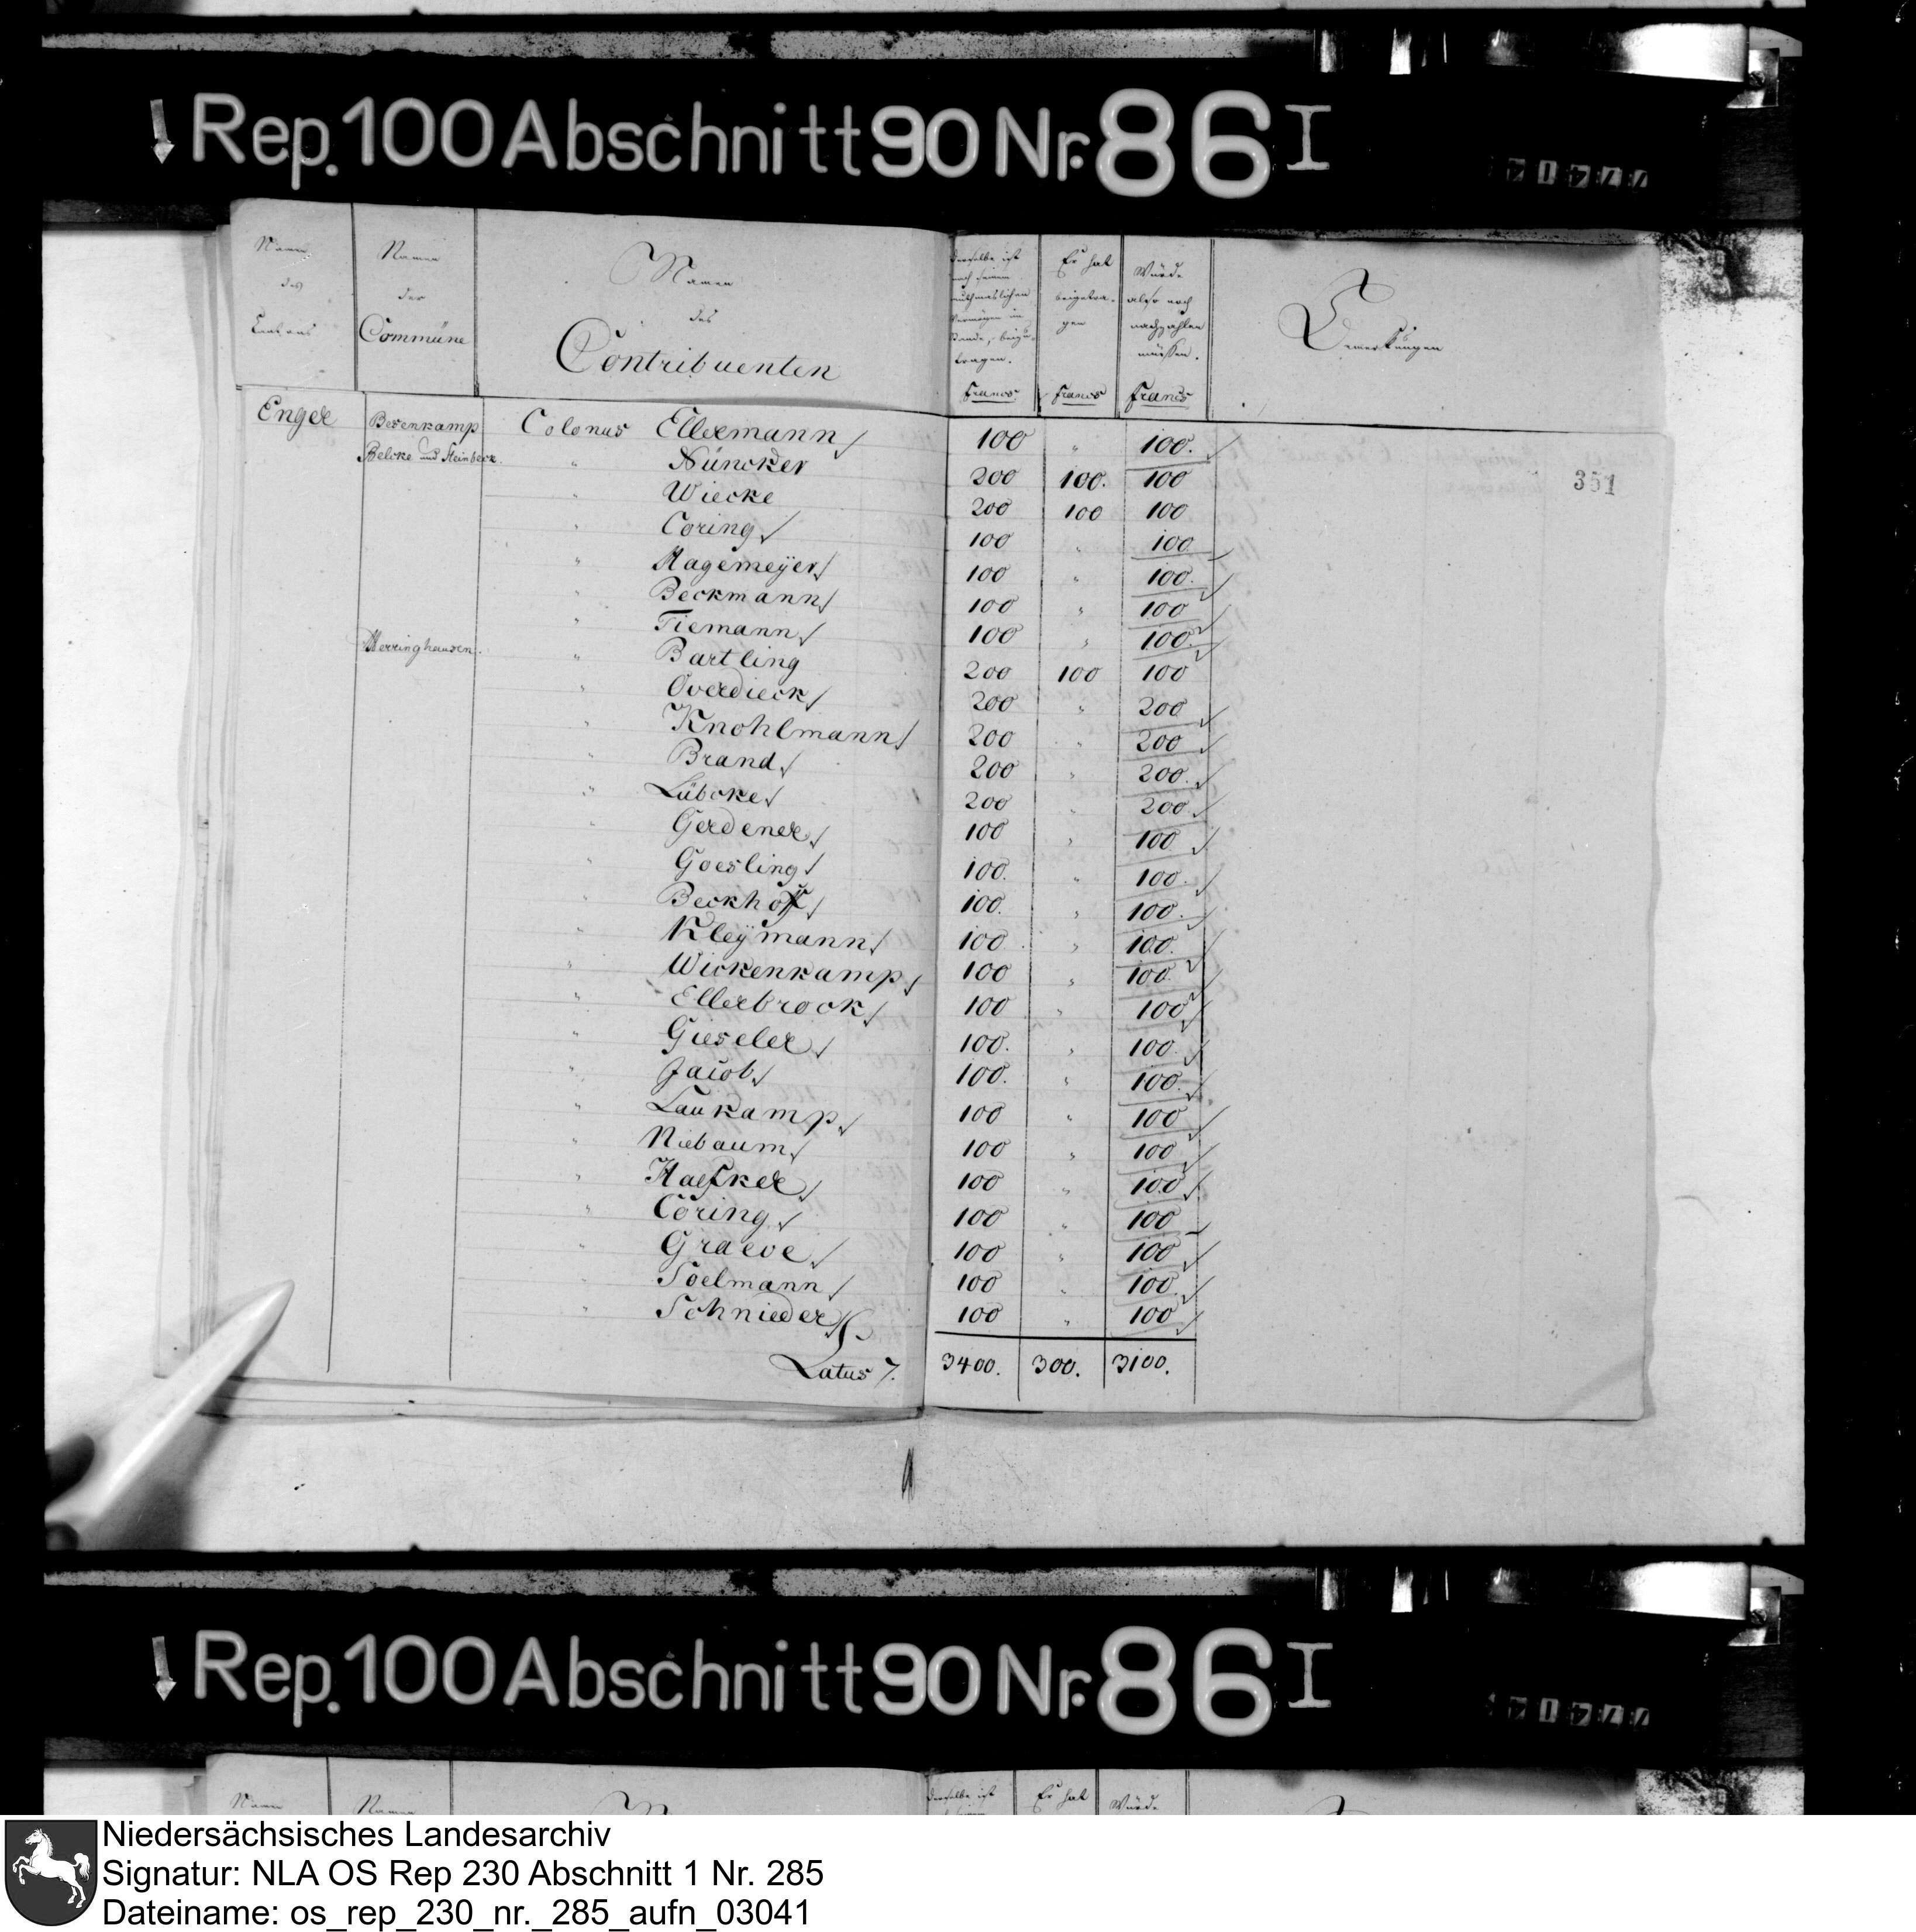 Rep. 100 Abschnitt 90 Nr. 86 I
Namen des Cantons
Namen der Commüne
Namen des Contribuenten
derselbe ist nach seinem muthmaslichen Vermögen im Stande, beizutragen. Francs
Er hat beigetragen Francs
Würde also noch nachzahlen müssen. Francs
Bemerkungen
351
Enger Besenkamp Colonus Ellermann 100 " 100.
Belcke und Steinbeck. " Nüncker 200 100. 100
" Wiecke 200 100 100
" Coring 100 " 100
" Hagemeÿer 100 " 100.
" Beckmann 100 " 100
" Tiemann 100 " 100.
Herringhausen. " Bartling 200 100 100
" Overdieck 200 " 200
" Knohlmann 200 " 200
" Brand 200 " 200.
" Lübcke 200 " 200
" Gerdener 100 " 100
" Goesling 100. " 100.
" Beckhoff 100. " 100.
" Kleÿmann 100 " 100.
" Wickenkamp 100 " 100.
" Ellerbrock 100 " 100
" Gieseler 100. " 100.
" Jacob 100. " 100.
" Laukamp 100 " 100
" Niebaum 100 " 100
" Haefker 100 " 100
" Coring 100 " 100
" Graeve 100 " 100
" Soelmann 100 " 100.
" Schnieder 100 " 100
Latus 7. 3400. 300. 3100.
Rep. 100 Abschnitt 90 Nr. 86 I
Namen
Namen
derselbe ist
Er hat
Würde
Niedersächsisches Landesarchiv
Signatur: NLA OS Rep 230 Abschnitt 1 Nr. 285
Dateiname: os_rep_230_nr._285_aufn_03041